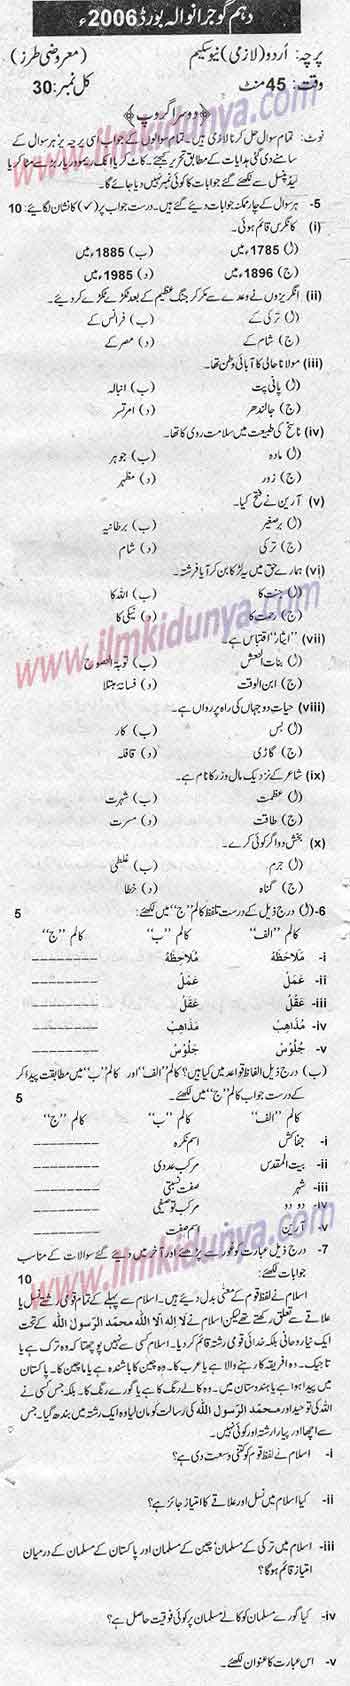 دہم گوجرانوالہ بورڈ 2006ء
پرچہ: اُردو (لازمی) نیو سکیم (معروضی طرز)
وقت: 45 منٹ کل نمبر: 30
﴿دوسرا گروپ﴾
نوٹ: تمام سوال حل کرنا لازمی ہیں۔ تمام سوالوں کے جواب اُسی پرچہ پر ہر سوال کے
سامنے دی گئی ہدایات کے مطابق تحریر کیجئے۔ کاٹ کر یا انک ریموور یا ربڑ سے مٹا کر یا
لیڈ پنسل سے لکھے گئے جوابات کا کوئی نمبر نہیں دیا جائے گا۔
5- ہر سوال کے چار ممکنہ جوابات دیئے گئے ہیں۔ درست جواب پر (✓) کا نشان لگایئے: 10
(i) کانگرس قائم ہوئی۔
(ل) 1785ء میں (ب) 1885ء میں
(ج) 1896ء میں (د) 1985ء میں
(ii) انگریزوں نے وعدے سے مکر کر جنگِ عظیم کے بعد ٹکڑے ٹکڑے کر دیئے۔
(ل) ترکی کے (ب) فرانس کے
(ج) شام کے (د) مصر کے
(iii) مولانا حالی کا آبائی وطن تھا۔
(ل) پانی پت (ب) انبالہ
(ج) جالندھر (د) امرتسر
(iv) ناسخ کی طبیعت میں سلامت روی کا تھا۔
(ل) مادہ (ب) جوہر
(ج) زور (د) مظہر
(v) آرین نے فتح کیا۔
(ل) برصغیر (ب) برطانیہ
(ج) ترکی (د) شام
(vi) ہمارے حق میں یہ لڑکا بن کر آیا فرشتہ۔
(ل) جنت کا (ب) اللہ کا
(ج) رحمت کا (د) نیکی کا
(vii) "ایثار" اقتباس ہے۔
(ل) بنات النعش (ب) توبۃ النصوح
(ج) ابن الوقت (د) فسانۂ مبتلا
(viii) حیاتِ دو جہاں کی راہ پر رواں ہے۔
(ل) بس (ب) کار
(ج) گاڑی (د) قافلہ
(ix) شاعر کے نزدیک مال و زر کا نام ہے۔
(ل) عظمت (ب) شہرت
(ج) طاقت (د) مسرت
(x) بخش دو اگر کوئی کرے۔
(ل) جرم (ب) غلطی
(ج) گناہ (د) خطا
6- (ل) درج ذیل کے درست تلفظ کالم "ج" میں لکھئے: 5
کالم "الف" کالم "ب" کالم "ج"
i- مَلاحَظَہ مُلاحَظَہ ________
ii- عَمَلْ عَمْلْ ________
iii- عَقَلْ عَقْلْ ________
iv- مُذَاہِبْ مَذَاہِبْ ________
v- جُلُوْسْ جَلُوْسْ ________
(ب) درج ذیل الفاظ قواعد میں کیا ہیں؟ کالم "الف" اور کالم "ب" میں مطابقت پیدا کر
کے درست جواب کالم "ج" میں لکھئے: 5
کالم "الف" کالم "ب" کالم "ج"
i- جفاکش اسم نکرہ ________
ii- بیت المقدس مرکب عددی ________
iii- شہر صفت نسبتی ________
iv- دو دو مرکب توصیفی ________
v- آرین اسم صفت ________
7- درج ذیل عبارت کو غور سے پڑھئے اور آخر میں دیئے گئے سوالات کے مناسب
جوابات لکھئے: 10
اسلام نے لفظ قوم کے معنی بدل دیئے ہیں۔ اسلام سے پہلے کے تمام قومی رشتے نسل یا
علاقے سے تعلق رکھتے تھے لیکن اسلام نے لا الہ الا اللہ محمد الرسول اللہ کے تحت
ایک نیا روحانی بلکہ خدائی قومی رشتہ قائم کر دیا۔ اسلام کسی سے نہیں پوچھتا کہ وہ ترک ہے یا
تاجیک۔ وہ افریقہ کا رہنے والا ہے یا عرب کا۔ وہ چین کا باشندہ ہے یا ماچین کا۔ پاکستان
میں پیدا ہوا ہے یا ہندوستان میں۔ وہ کالے رنگ کا ہے یا گورے رنگ کا۔ بلکہ جس کسی نے
اللہ کی توحید اور محمد الرسول اللہ کی رسالت کو مان لیا وہ ایک رشتہ میں بندھ گیا۔ جس
سے اچھا اور پیارا رشتہ اور کوئی نہیں۔
i- اسلام نے لفظ قوم کو کتنی وسعت دی ہے؟
ii- کیا اسلام میں نسل اور علاقے کا امتیاز جائز ہے؟
iii- اسلام میں ترکی کے مسلمان، چین کے مسلمان اور پاکستان کے مسلمان کے درمیان
امتیاز قائم ہو گا؟
iv- کیا گورے مسلمان کو کالے مسلمان پر کوئی فوقیت حاصل ہے؟
v- اس عبارت کا عنوان لکھئے۔
www.ilmkidunya.com
www.ilmkidunya.com
www.ilmkidunya.com
www.ilmkidunya.com